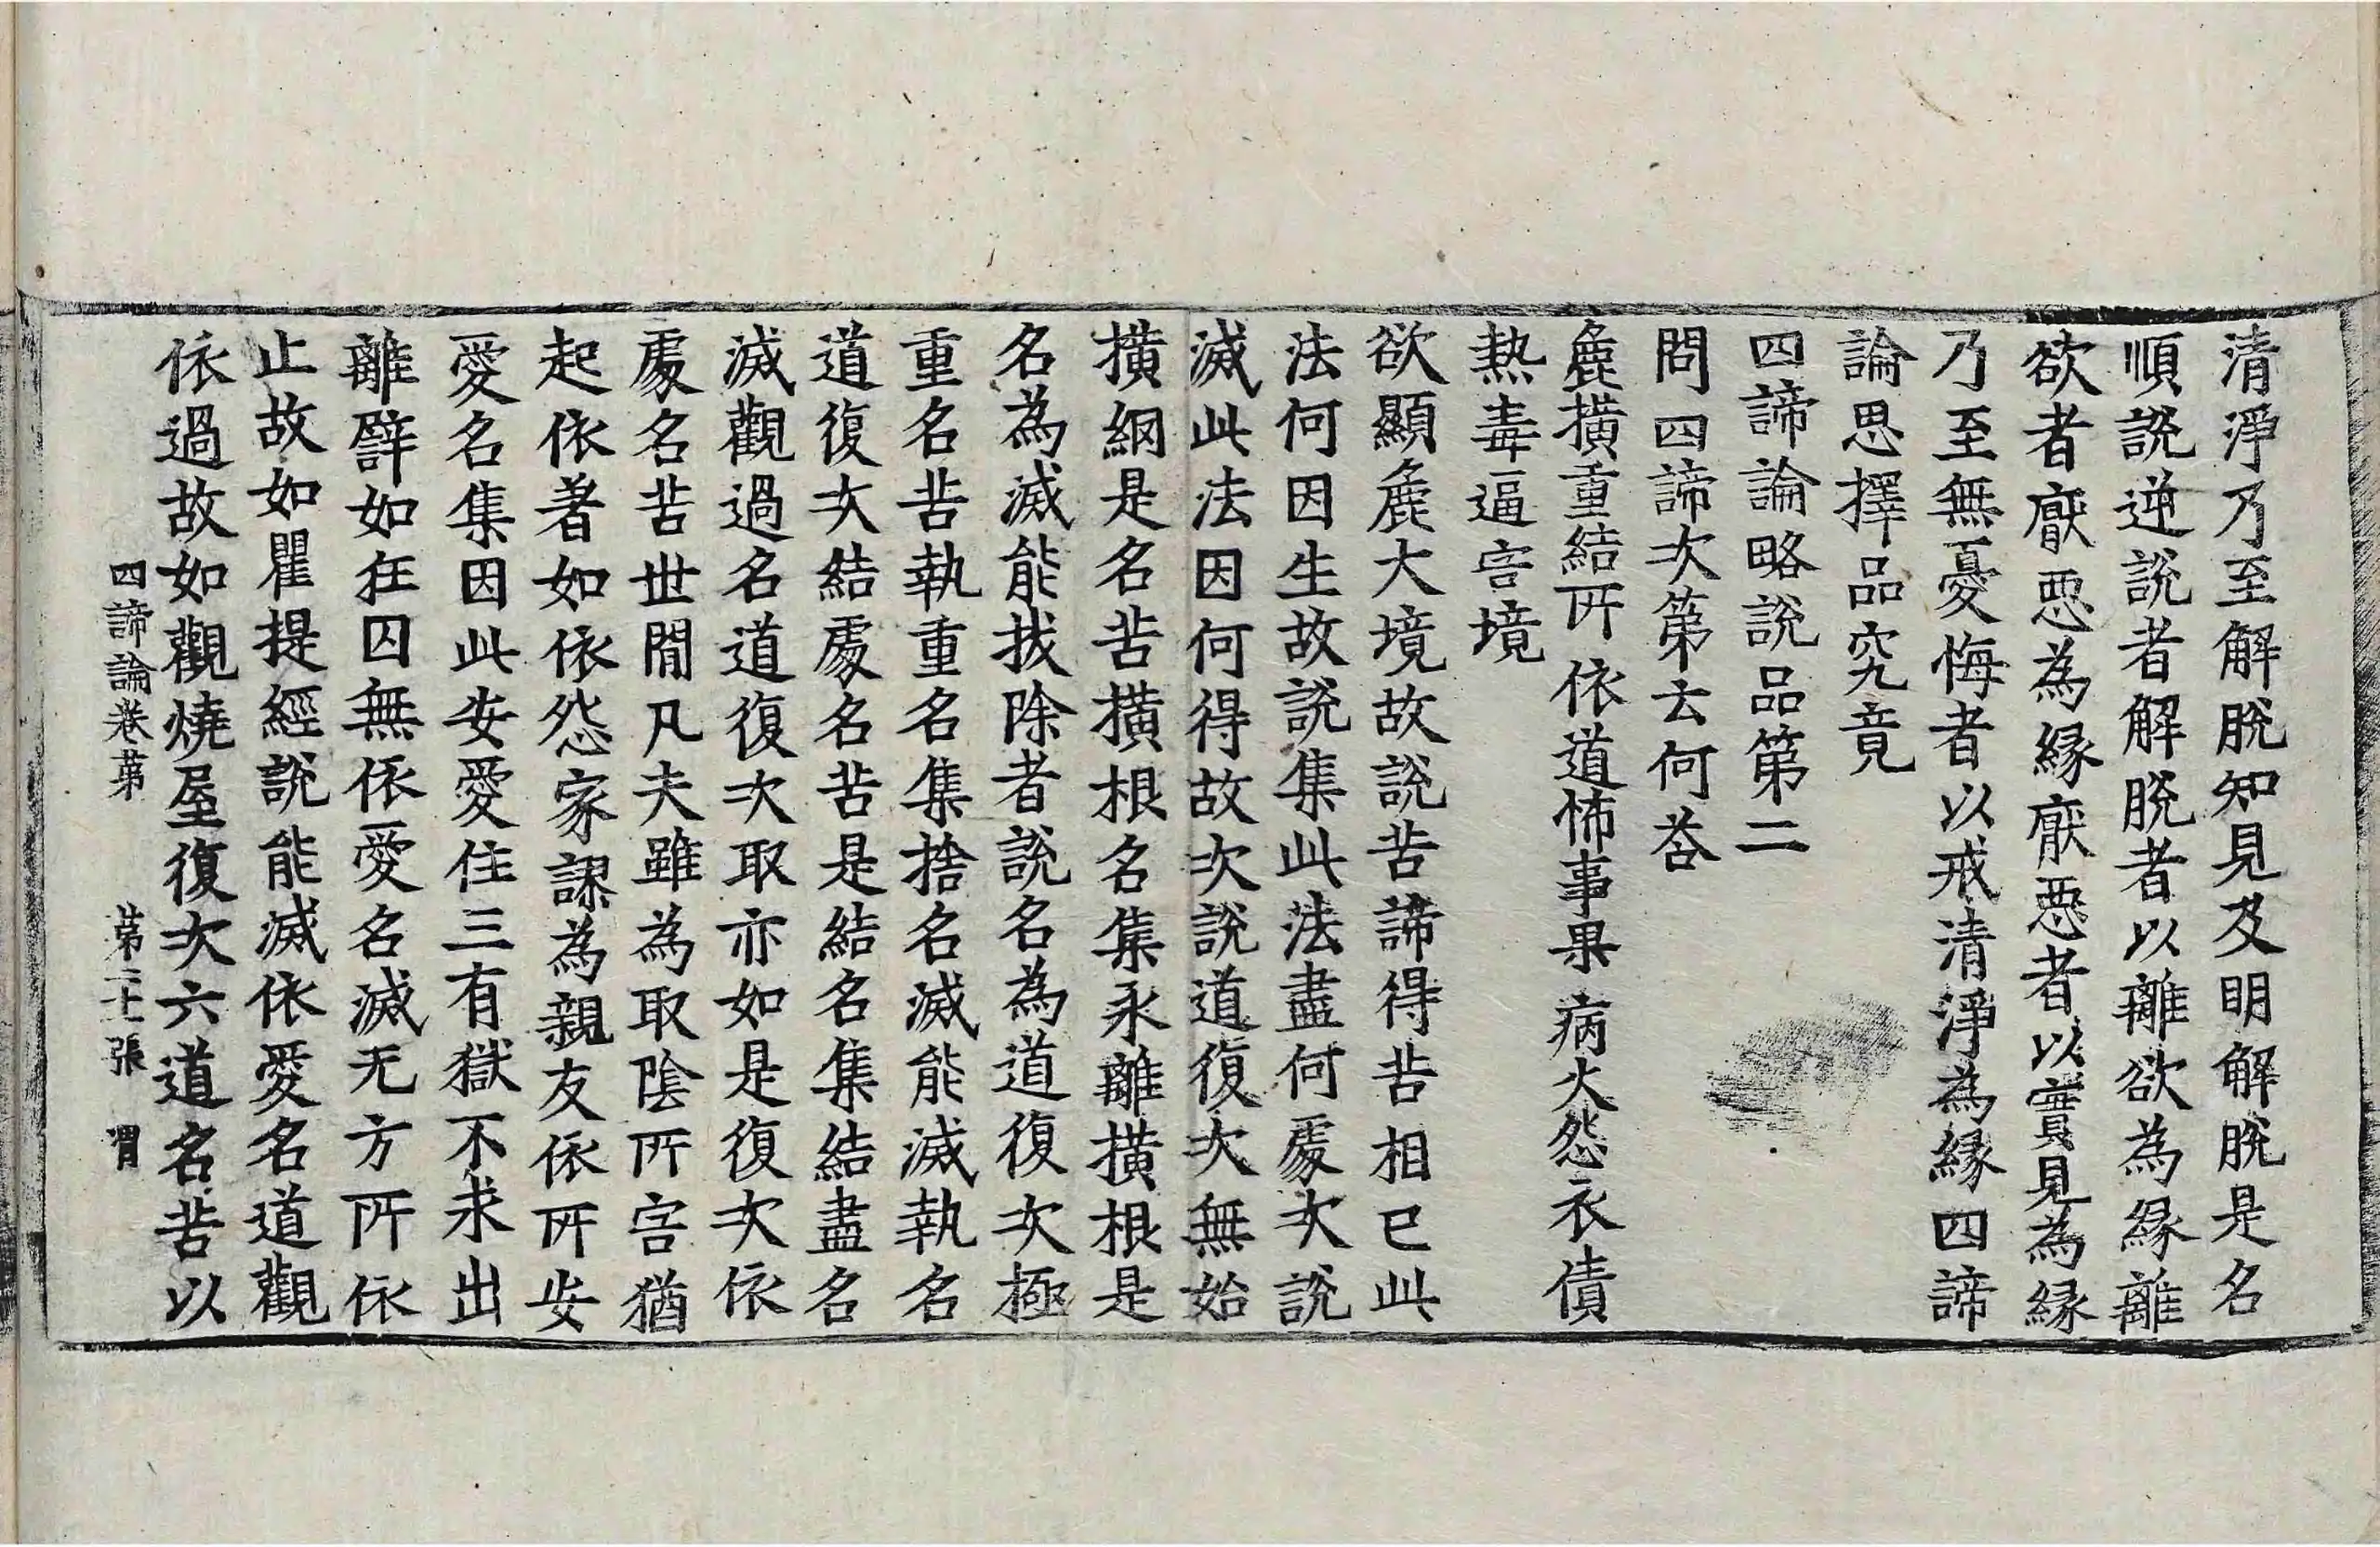 清淨乃至解脫知見及明解脫是名
順說逆說者解脫者以離欲為緣離
欲者猒惡為緣猒惡者以實見為緣
乃至無憂悔者以戒清淨為緣四諦
論思擇品究竟
四諦論略說品第二
問四諦次第云何荅
麁撗重結所 依道怖事果 病火怨衣債
熱毒逼害境
欲顯麁大境故說苦諦得苦相已此
法何因生故說集此法盡何處次說
滅此法因何得故次說道復次無始
撗網是名苦撗根名集永離撗根是
名為滅能拔除者說名為道復次極
重名苦執重名集捨名滅能滅執名
道復次結處名苦是結名集結盡名
滅觀過名道復次取亦如是復次依
處名苦世閒凡夫雖為取陰所害猶
起依著如依怨家謬為親友依所安
愛名集因此安愛住三有獄不求出
離譬如狂囚無依愛名滅无方所依
止故如瞿提經說能滅依愛名道觀
依過故如觀燒屋復次六道名苦以
四諦論卷第 第二十張